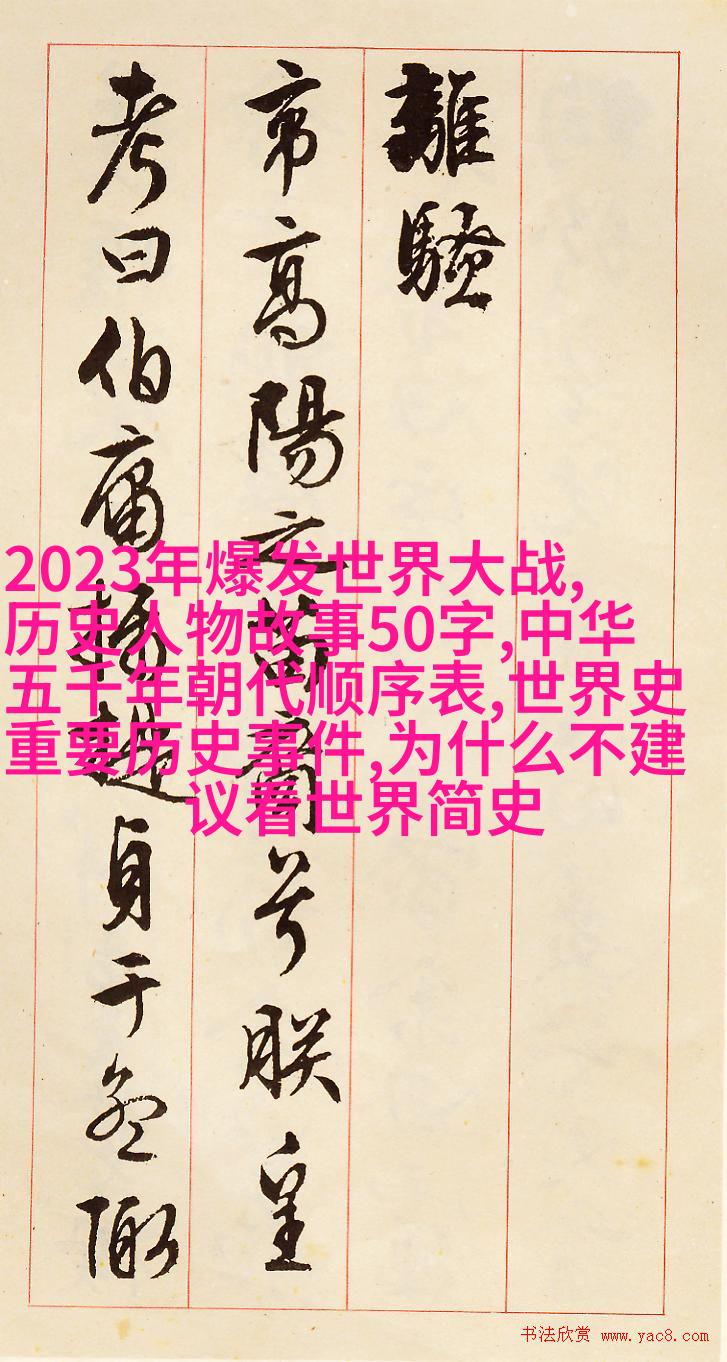 離騷
帝高陽之苗裔兮朕皇
考曰伯庸攝提貞于孟陬
2023年爆发世界大战,
历史人物故事50字,中华
五千年朝代顺序表,世界史
重要历史事件,为什么不建
议看世界简史
书法欣赏 www.yac8.com